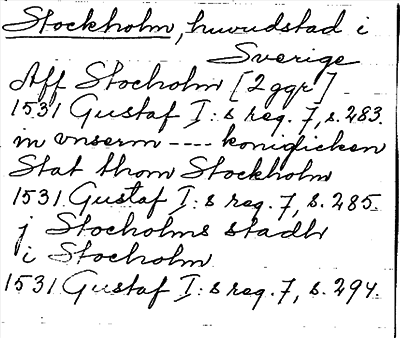 Stockholm, huvudstad i
Sverige
Aff Stocholm [2 ggr]
1531 Gustaf I:s reg. 7, s. 283.
in vnserm ---- koniglicken
Stat thom Stockholm
1531 Gustaf I:s reg. 7, s. 285.
j Stocholms stadh
i Stocholm
1531 Gustaf I:s reg. 7, s. 294.